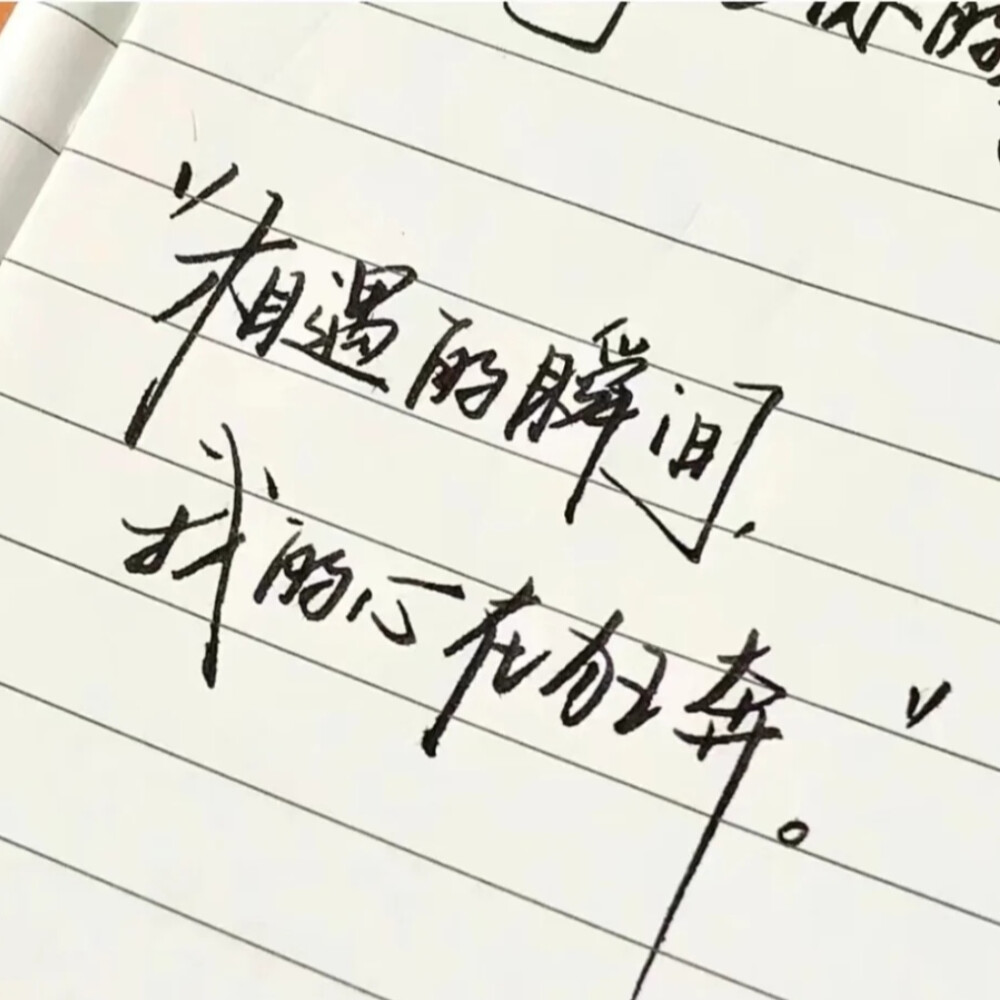 你的
“相遇的瞬间,
我的心在狂奔。”